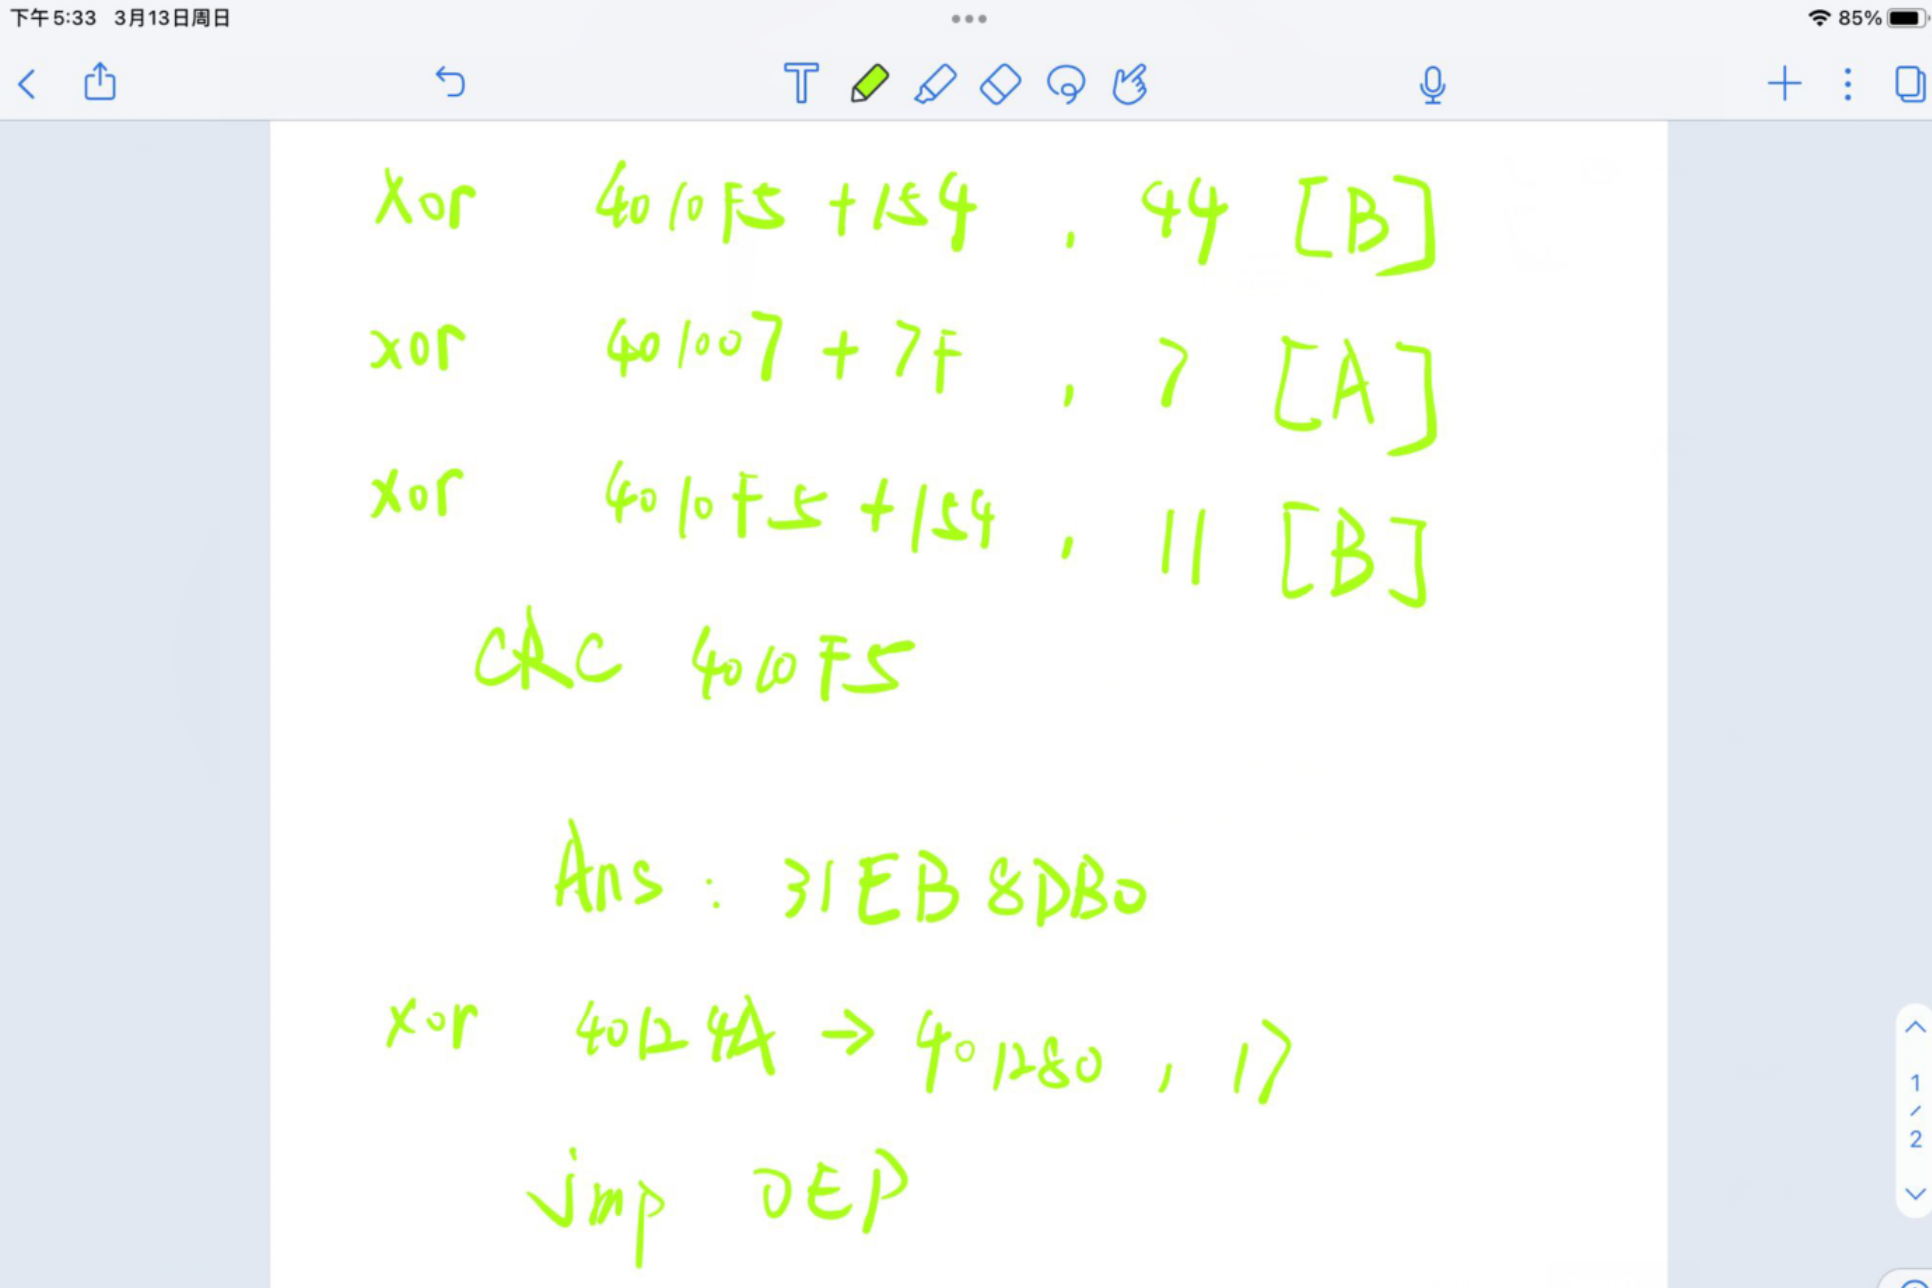 下午5:33 3月13日周日
85%
T
Xor 4010F5 +154 , 44 [B]
xor 401007 + 7F , 7 [A]
xor 4010F5 +154 , 11 [B]
CRC 4010F5
Ans : 31EB8DB0
xor 40124A → 401280 , 17
jmp OEP
1
/
2